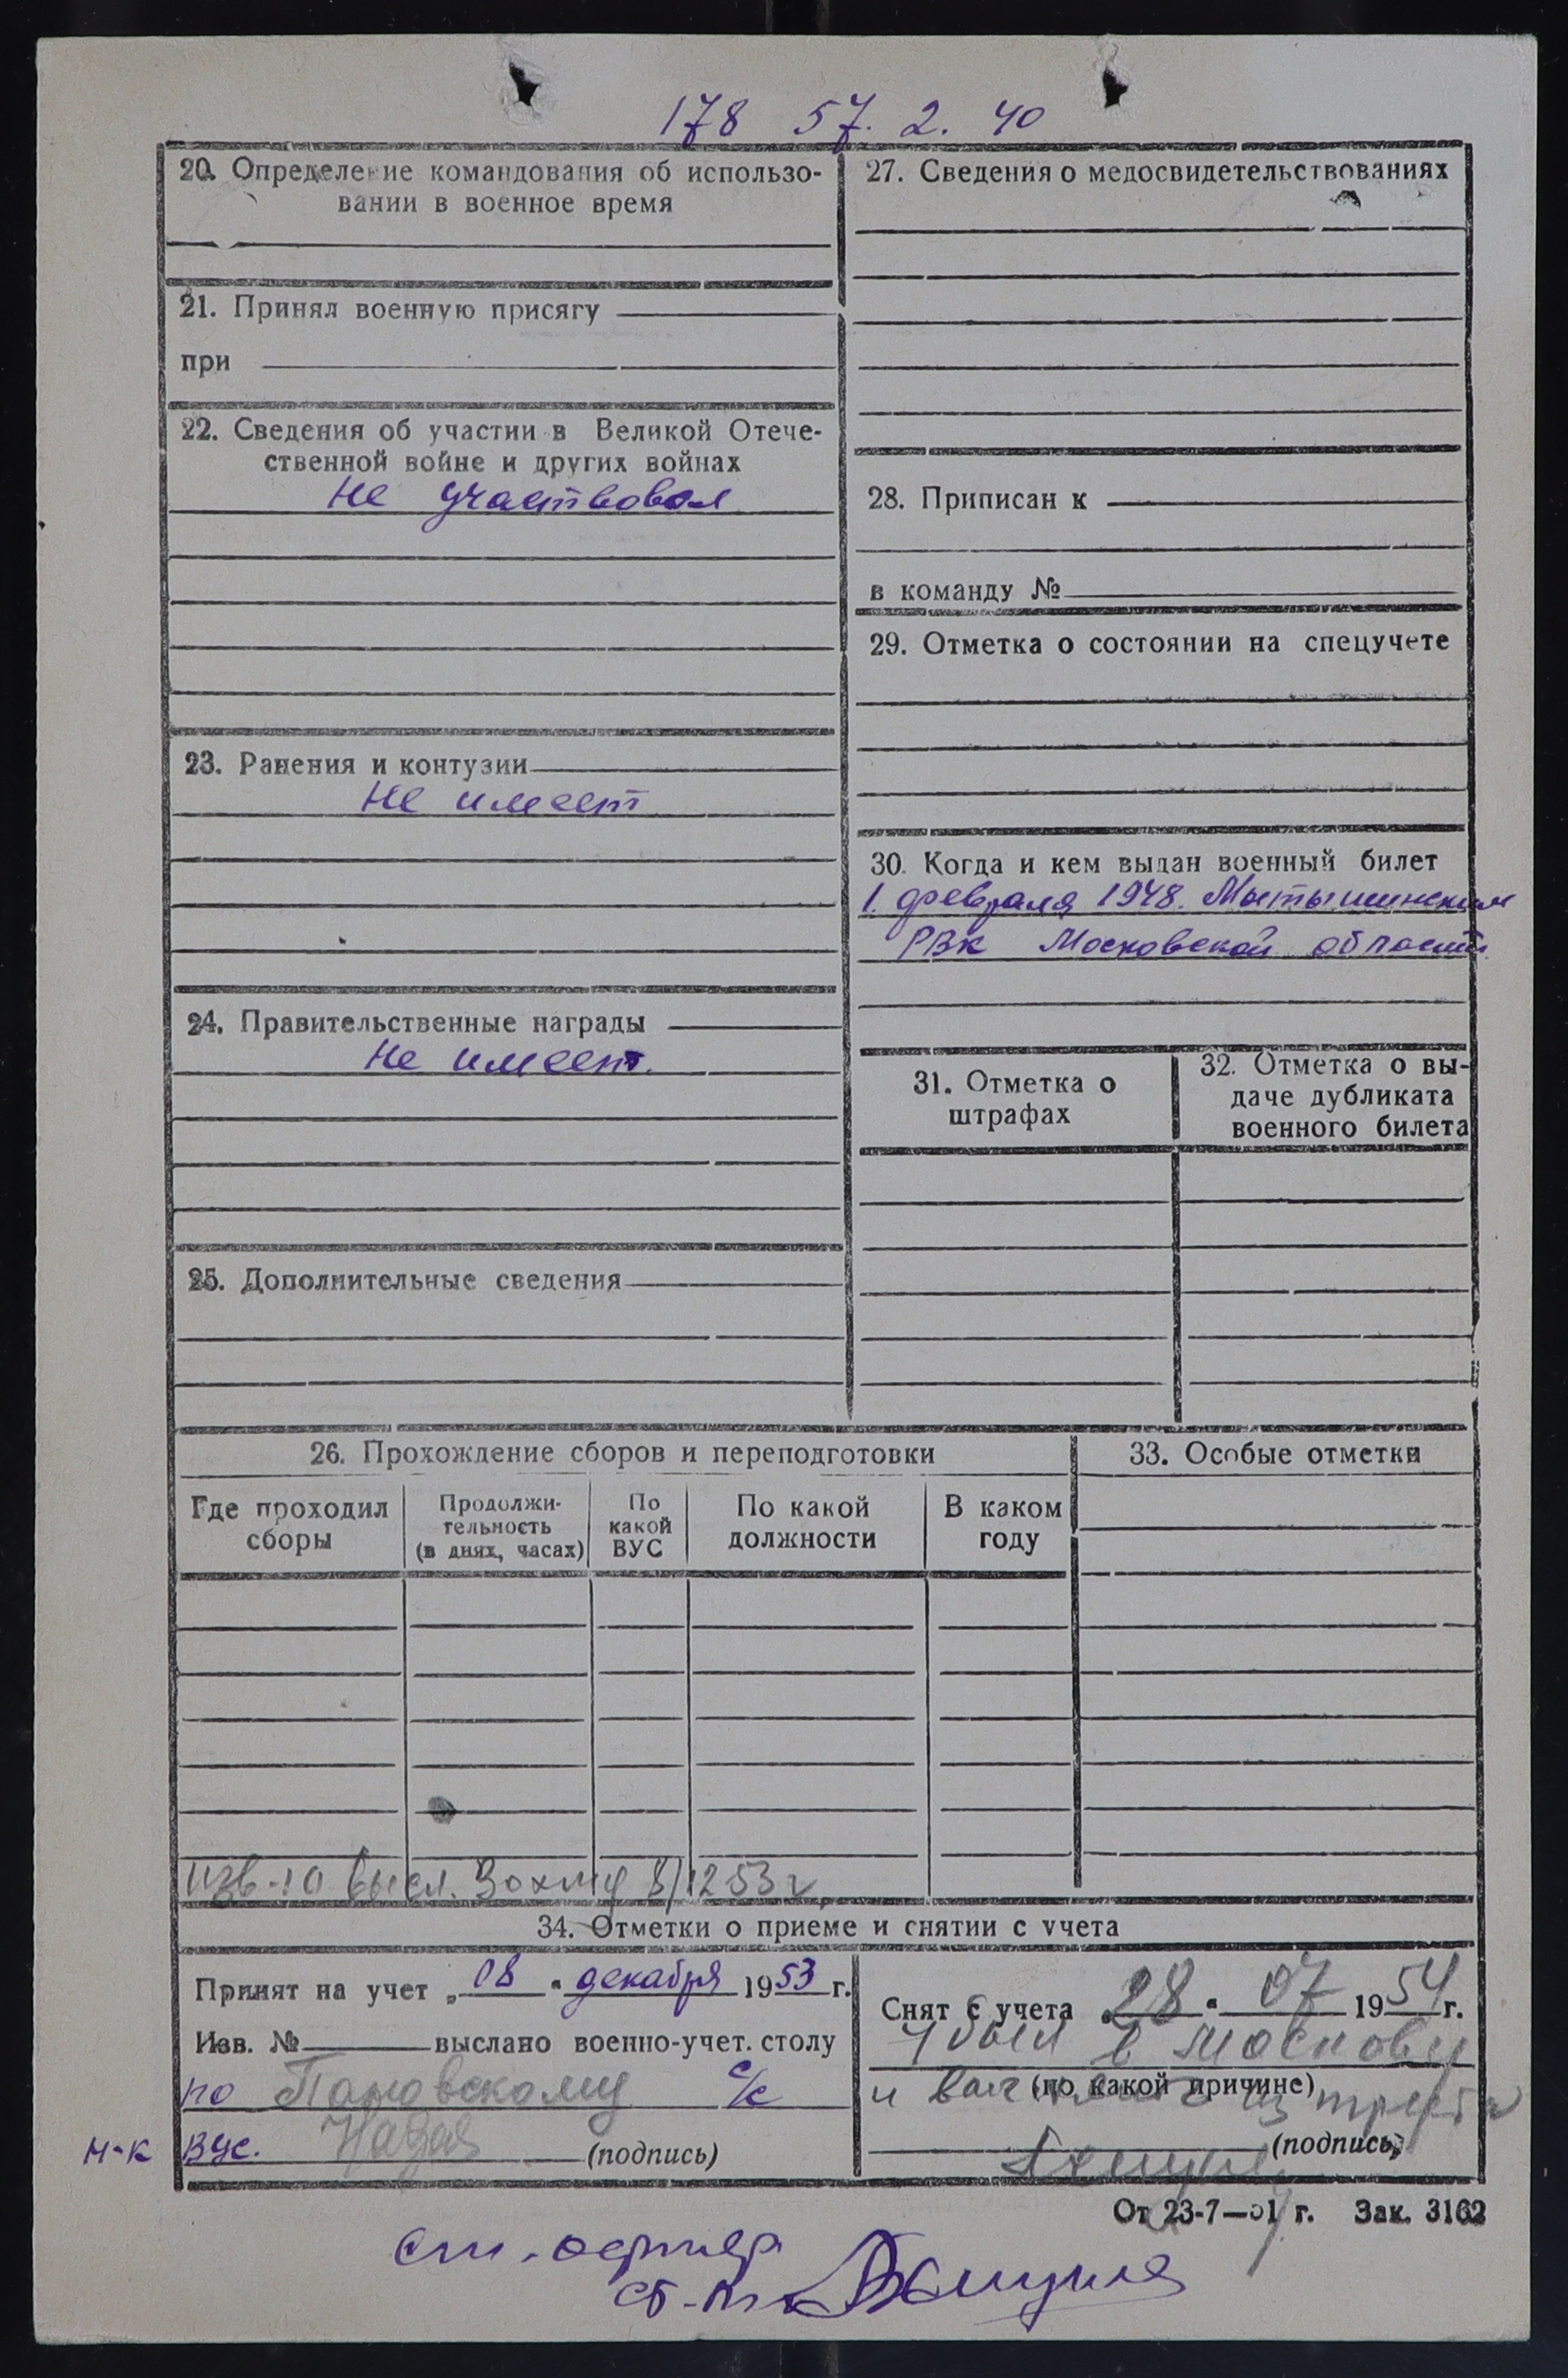 178 57. 2. 40
20. Определение командования об использо-
вании в военное время
21. Принял военную присягу
при
22. Сведения об участии в Великой Отече-
ственной войне и других войнах
Не участвовал
23. Ранения и контузии
Не имеет
24. Правительственные награды
Не имеет.
25. Дополнительные сведения
27. Сведения о медосвидетельствованиях
28. Приписан к
в команду №
29. Отметка о состоянии на спецучете
30. Когда и кем выдан военный билет
1. февраля 1948. Мытищинским
РВК Московской области
31. Отметка о
штрафах
32. Отметка о вы-
даче дубликата
военного билета
26. Прохождение сборов и переподготовки
Где проходил
сборы
Продолжи-
тельность
(в днях, часах)
По
какой
ВУС
По какой
должности
В каком
году
33. Особые отметки
высл. 8/12 53 г.
34. Отметки о приеме и снятии с учета
Принят на учет „08" декабря 1953 г.
Изв. № выслано военно-учет. столу
по с/с
н-к ВУС. (подпись)
Снят с учета „28" 07 1954 г.
убыл в Москву
(по какой причине)
и из
(подпись)
От 23-7—51 г. Зак. 3162
ст.